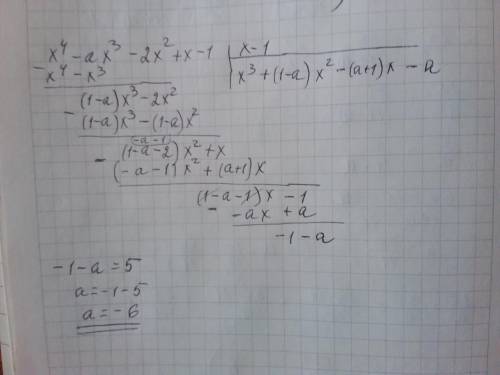 x⁴ - ax³ - 2x² + x - 1 | x - 1
- x⁴ - x³ | x³ + (1-a)x² - (a+1)x - a
(1-a)x³ - 2x²
- (1-a)x³ - (1-a)x²
(-a-1)
- (1-a-2)x² + x
(-a-1)x² + (a+1)x
(1-a-1)x - 1
- -ax + a
-1 - a
-1 - a = 5
a = -1 - 5
a = -6